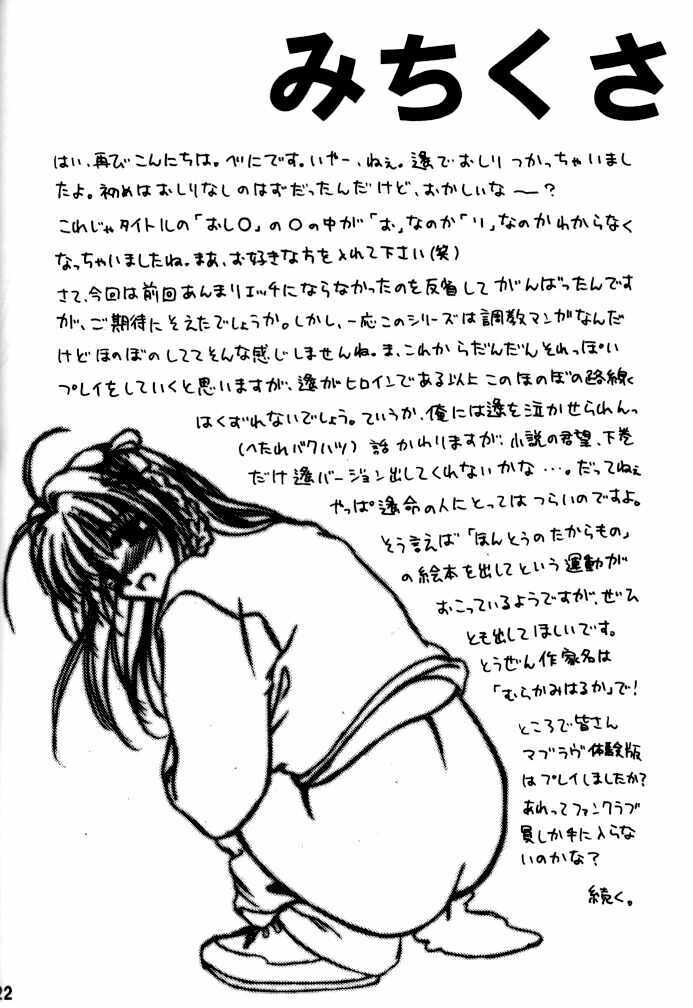 みちくさ
はい、再びこんにちは。べにです。いやー、ねぇ。遙でおしりつかっちゃいまし
たよ。初めはおしりなしのはずだったんだけど、おかしいなー?
これじゃタイトルの「おし〇」の〇の中が「お」なのか「り」なのかわからなく
なっちゃいましたね。まあ、お好きな方を入れて下さい(笑)
さて、今回は前回あんまりエッチにならなかったのを反省してがんばったんです
が、ご期待にそえたでしょうか。しかし、一応このシリーズは調教マンガなんだ
けどほのぼのしててそんな感じしませんね。ま、これからだんだんそれっぽい
プレイをしていくと思いますが、遙がヒロインである以上このほのぼの路線は
はくずれないでしょう。ていうか、俺には遙を泣かせられんっ
(へたれバクハツ) 話かわりますが、小説の君望、下巻
だけ遙バージョン出してくれないかな…。だってねぇ
やっぱ遙命の人にとってはつらいのですよ。
そう言えば「ほんとうのたからもの」
の絵本を出してという運動が
おこっているようですが、ぜひ
とも出してほしいです。
とうぜん作家名は
「むらかみはるか」で!
ところで皆さん
マブラヴ体験版
はプレイしましたか?
あれってファンクラブ
員しか手に入らな
いのかな?
続く。
22